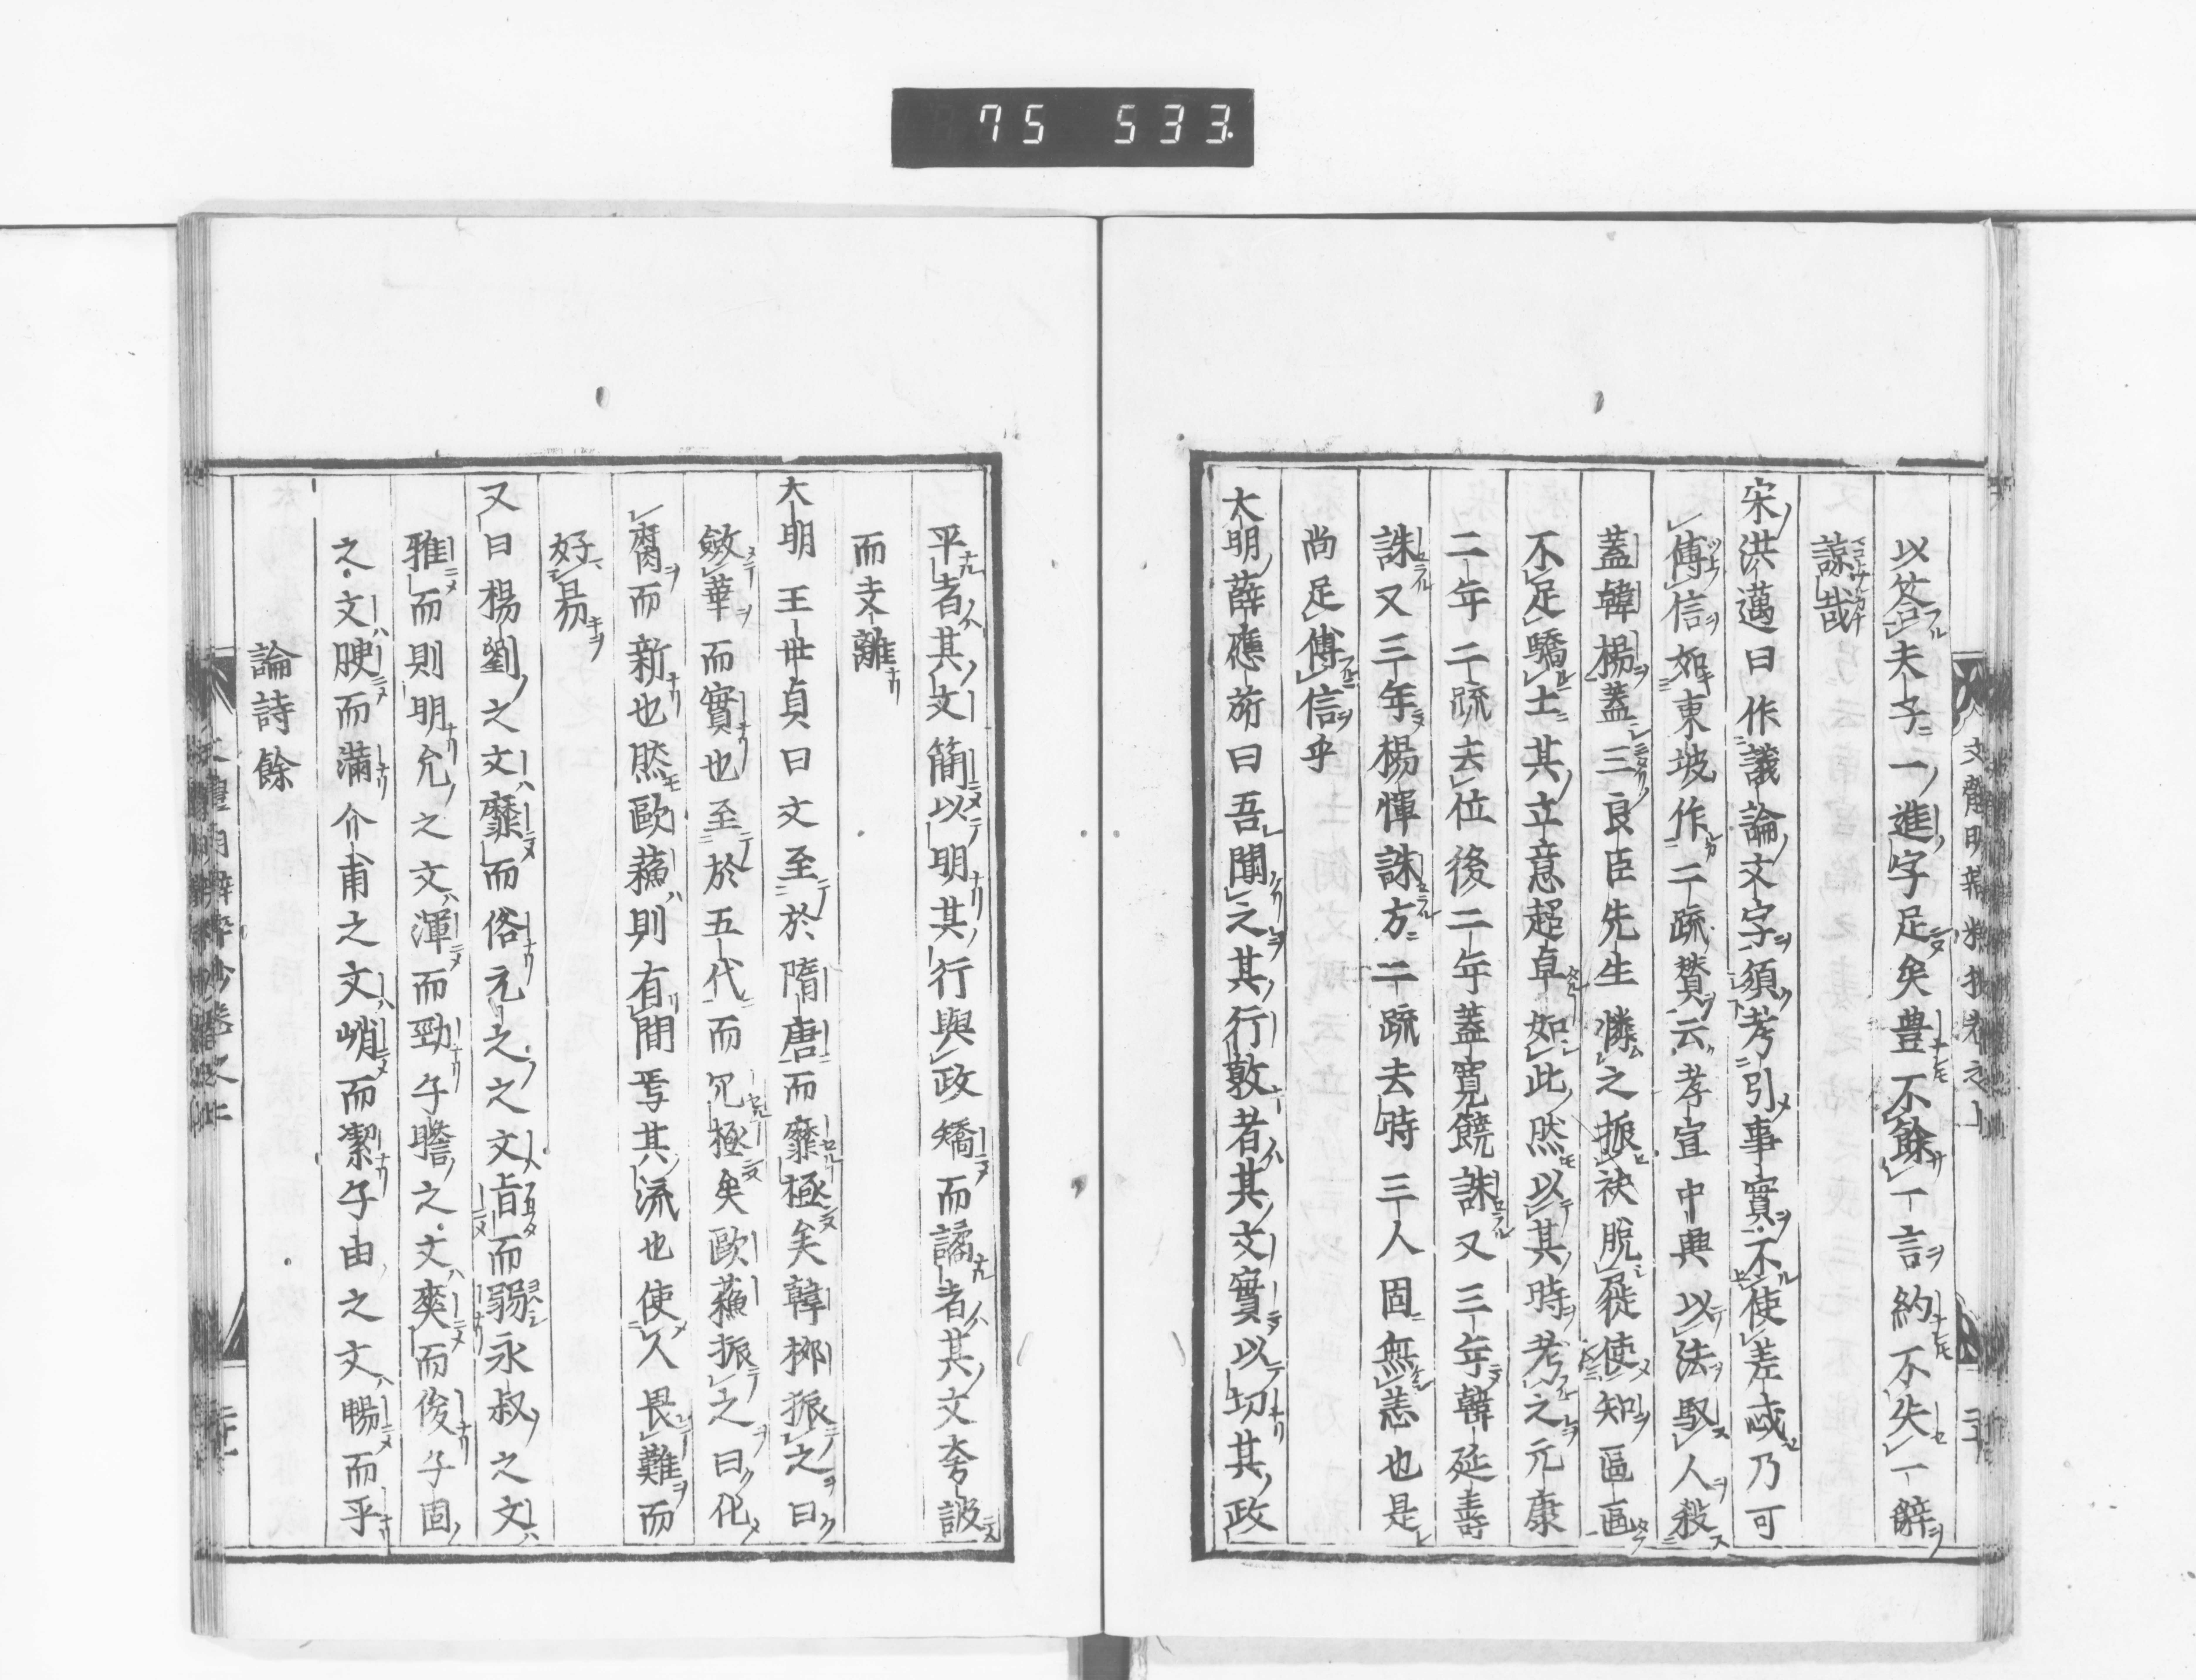 75 533
以答夫子一進字足矣豊不餘一言約不失一辭
諒哉
宋洪邁曰作議論文字須考引事實不使差忒乃可
傳信如東坡作二疏贊云孝宣中興以法馭人殺
蓋韓楊蓋三良臣先生憐之振袂脫屣使知區區
不足驕士其立意超卓如此然以其時考之元康
二年二疏去位後二年蓋寬饒誅又三年韓延壽
誅又三年楊惲誅方二疏去時三人固無恙也是
尚足傳信乎
大明薛應旂曰吾聞之其行敦者其文實以切其政
平者其文簡以明其行與政矯而譎者其文夸詖
而支離
大明王世貞曰文至於隋唐而靡極矣韓柳振之曰
斂華而實也至於五代而冗極矣歐蘇振之曰化
腐而新也然歐蘇則有間焉其流也使人畏難而
好易
又曰楊劉之文靡而俗元之之文旨而弱永叔之文
雅而則明允之文渾而勁子瞻之文爽而俊子固
之文腴而滿介甫之文峭而潔子由之文暢而平
論詩餘